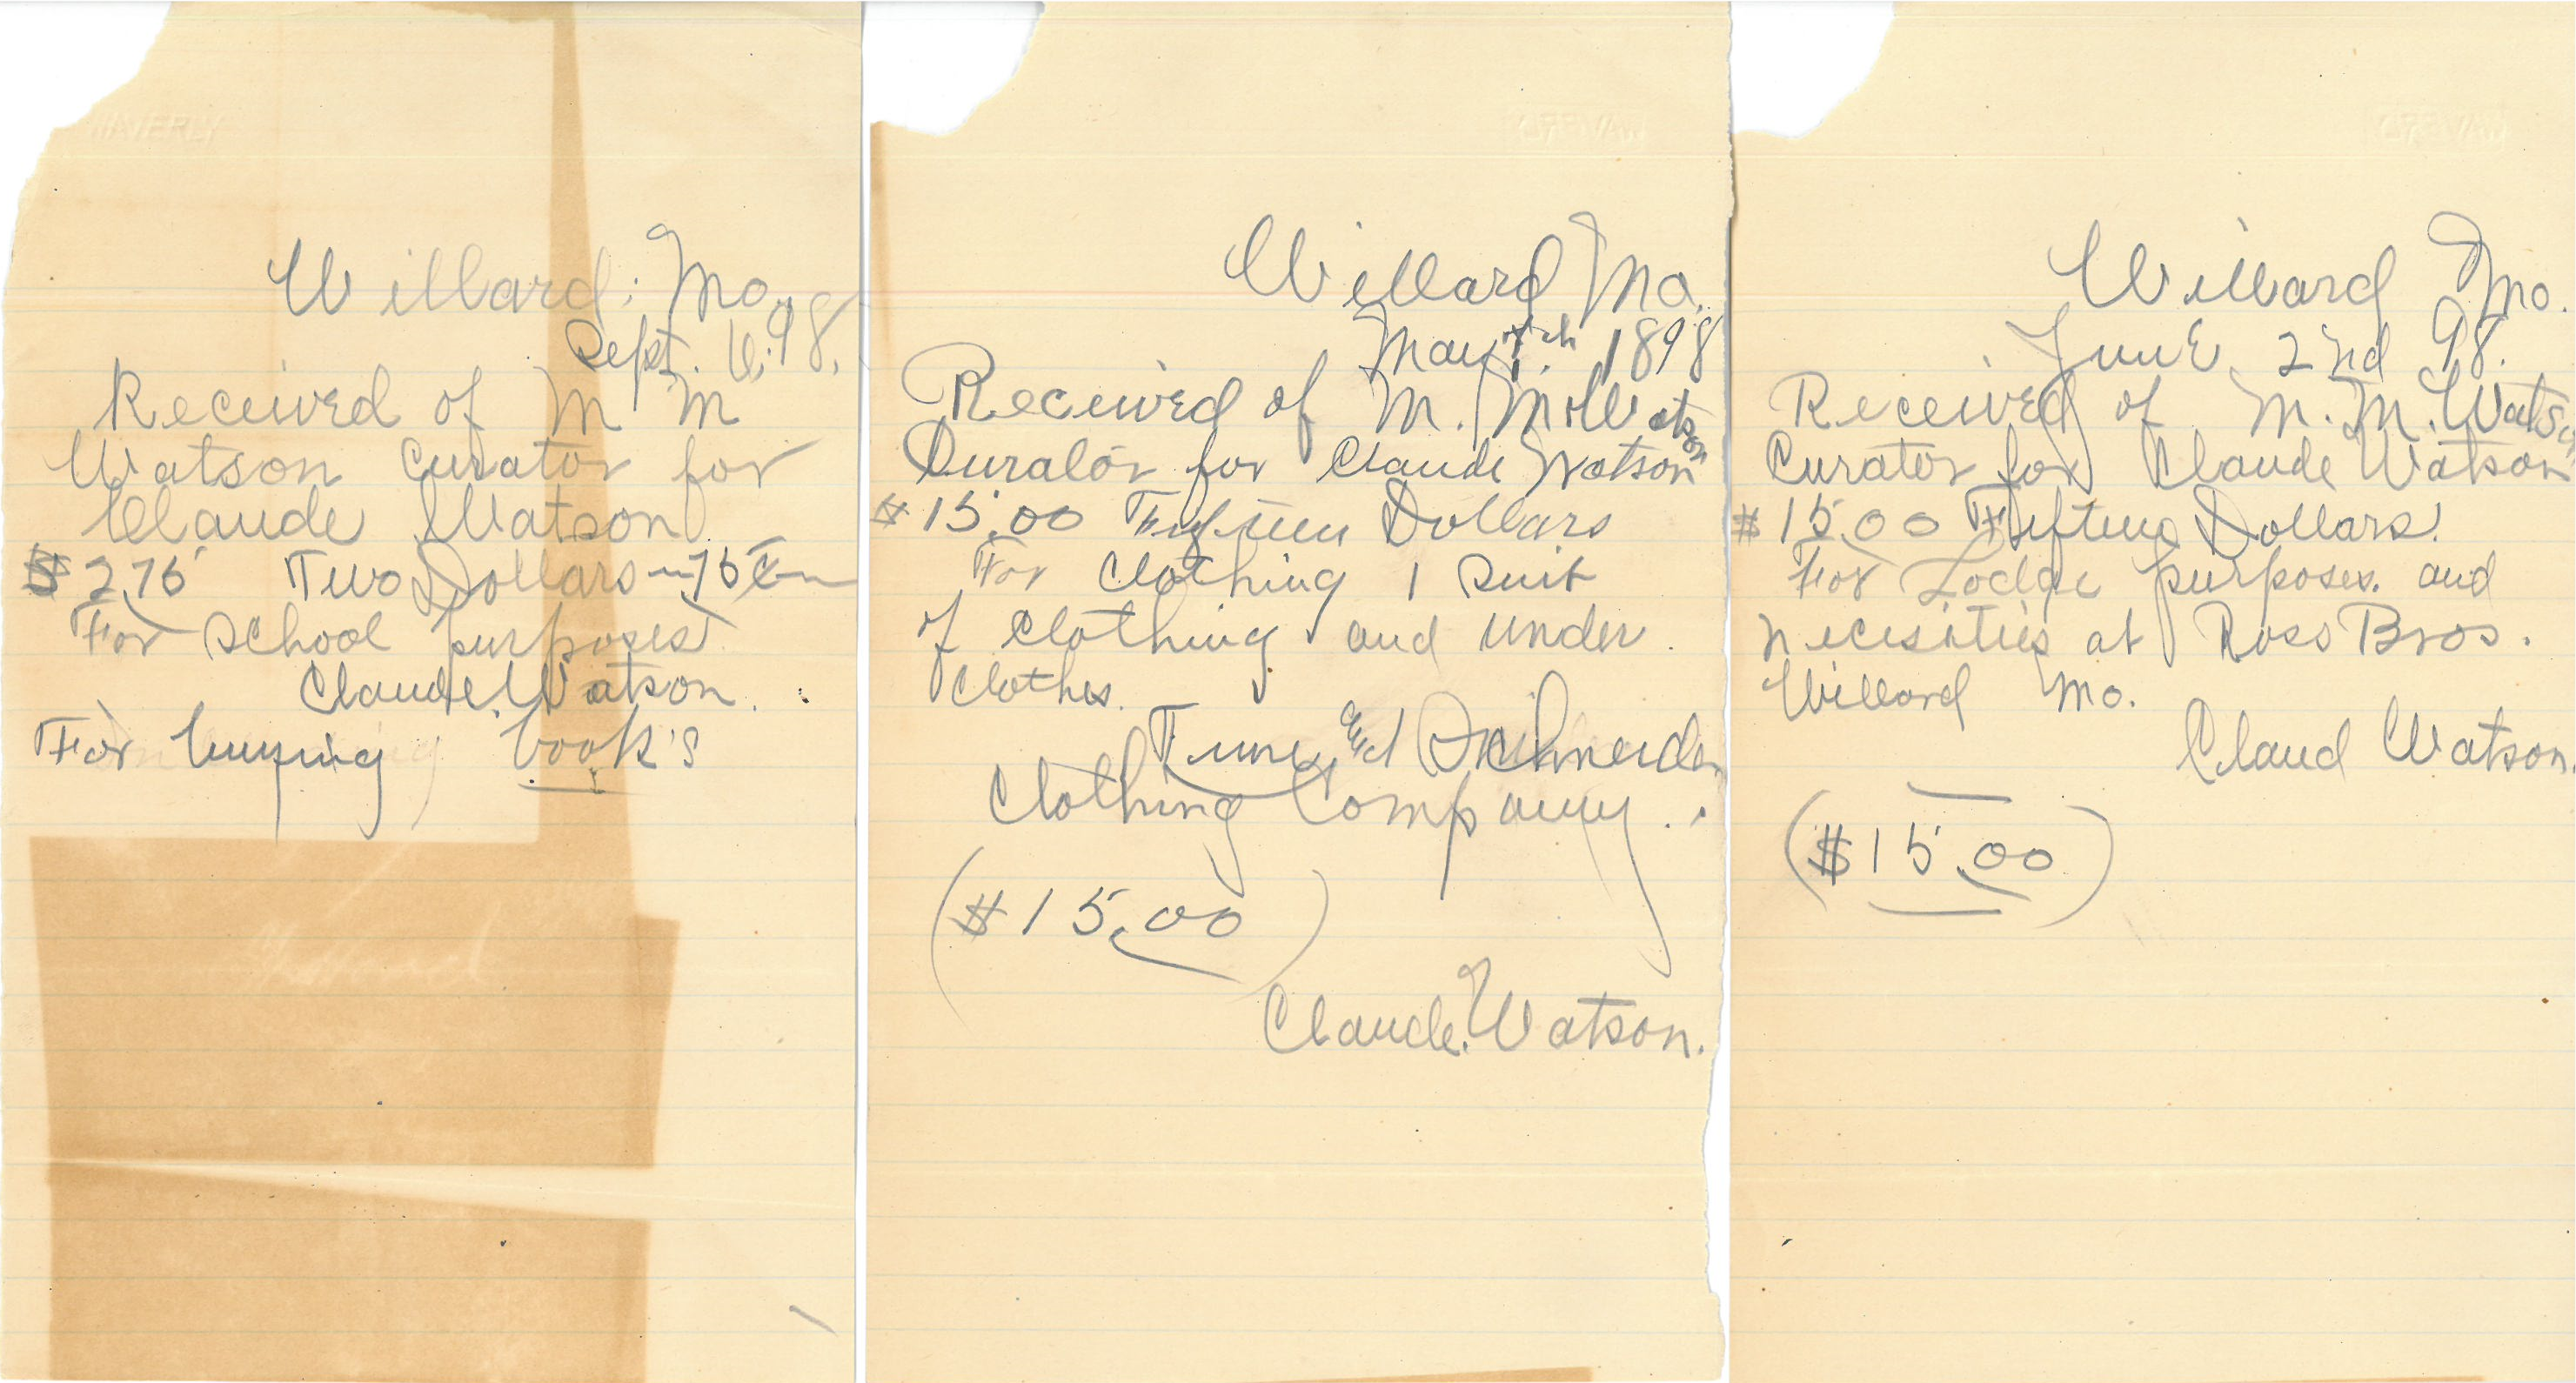 WAVERLY
Willard, Mo.
Sept. 6, 98.
Received of M M
Watson Curator for
Claude Watson
$2.75 Two Dollars - 75 c
For School purposes
Claude Watson.
For buying book's
Willard Mo.
May 1898
Received of M. M. Watson
Curator for Claude Watson
$15.00 Fifteen Dollars
For Clothing 1 Suit
of Clothing and under
Clothes.
and Schneider
Clothing Company.
($15.00)
Claude Watson.
WAVERLY
Willard Mo.
June 2nd 98.
Received of M. M. Watson
Curator for Claude Watson
$15.00 Fifteen Dollars.
For Lodge purposes. and
necisities at Ross Bros.
Willard Mo.
Claud Watson.
($15.00)